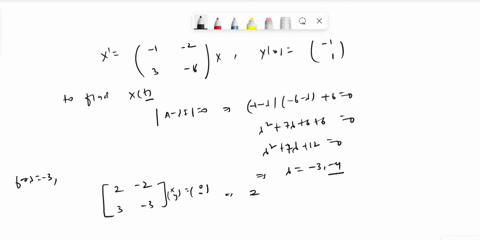 x' = ( -1 -2 ; 3 -6 ) x , y(0) = ( -1 ; 1 )
to find x(t)
|A-λI|=0 ⇒ (-1-λ)(-6-λ)+6=0
λ²+7λ+6+6=0
λ²+7λ+12=0
⇒ λ=-3,-4
for λ=-3,
[ 2 -2 ; 3 -3 ] (x ; y) = (0 ; 0) ⇒ 2